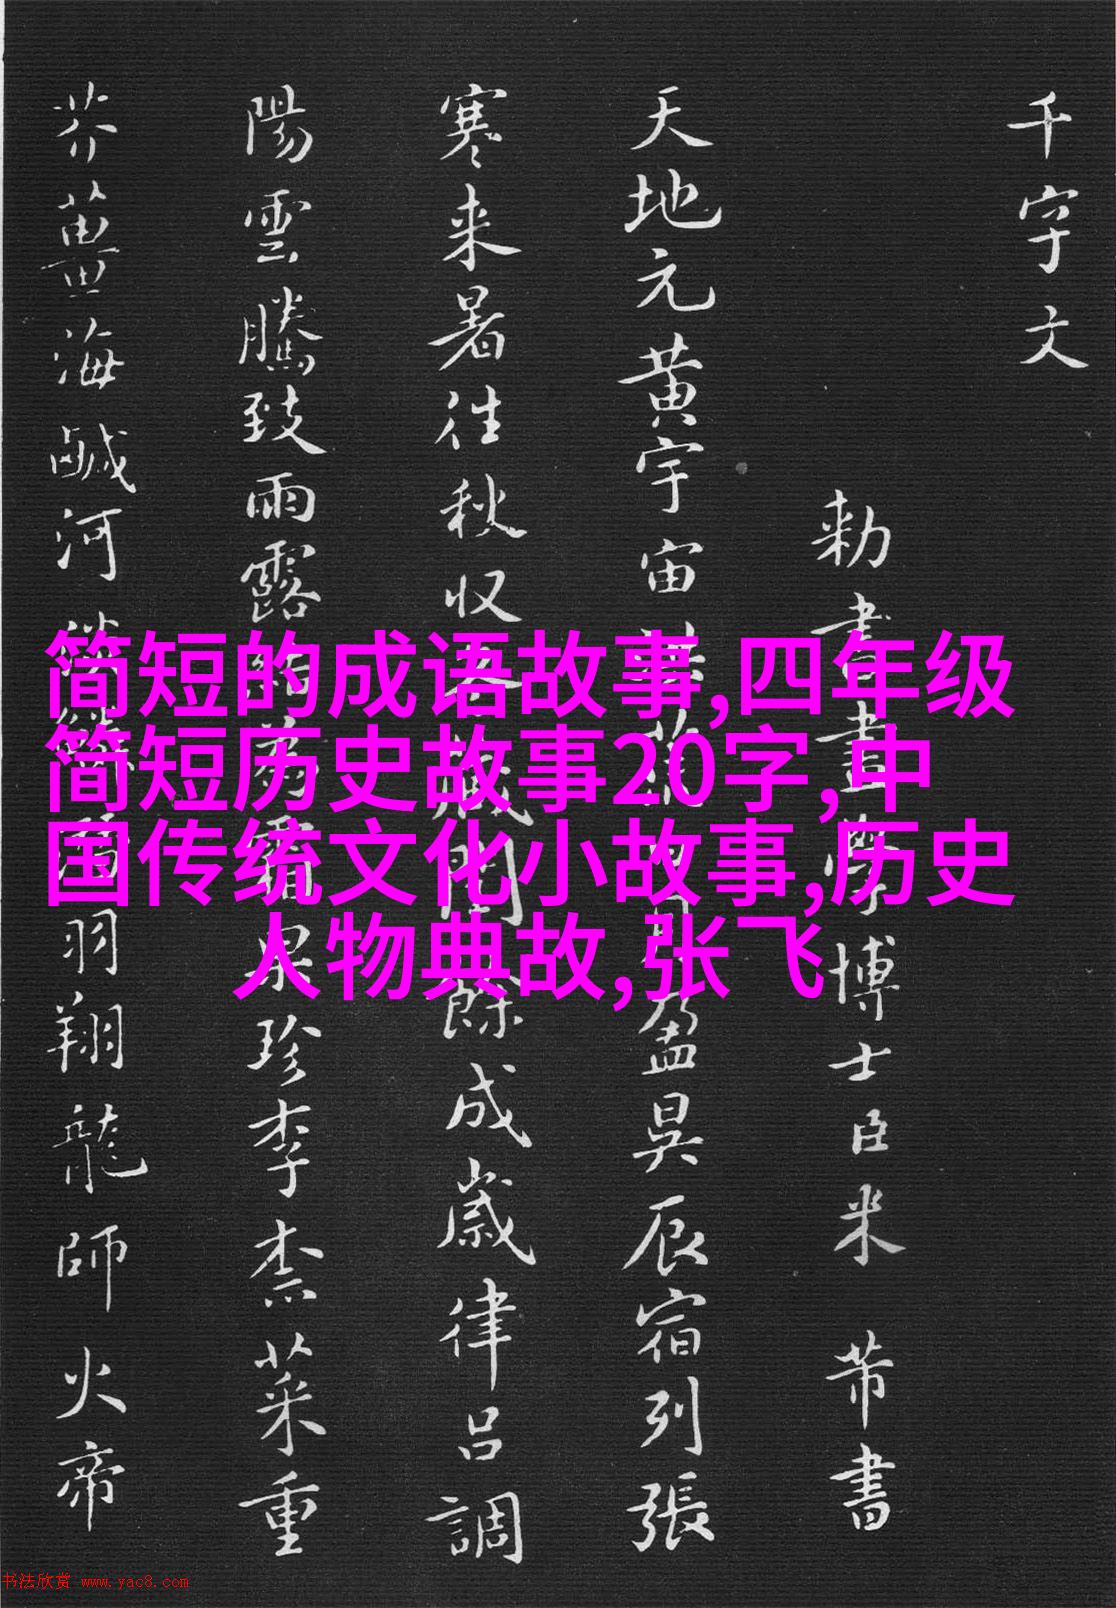 千字文
勅書畫學博士臣米芾書
天地元黄宇宙洪荒日月盈昃辰宿列張
寒来暑往秋收冬藏閏餘成歲律吕調
陽雲騰致雨露結為霜果珍李柰菜重
芥薑海鹹河淡鱗潛羽翔龍師火帝
简短的成语故事,四年级
简短历史故事20字,中
国传统文化小故事,历史
人物典故,张飞
书法欣赏 www.yac8.com